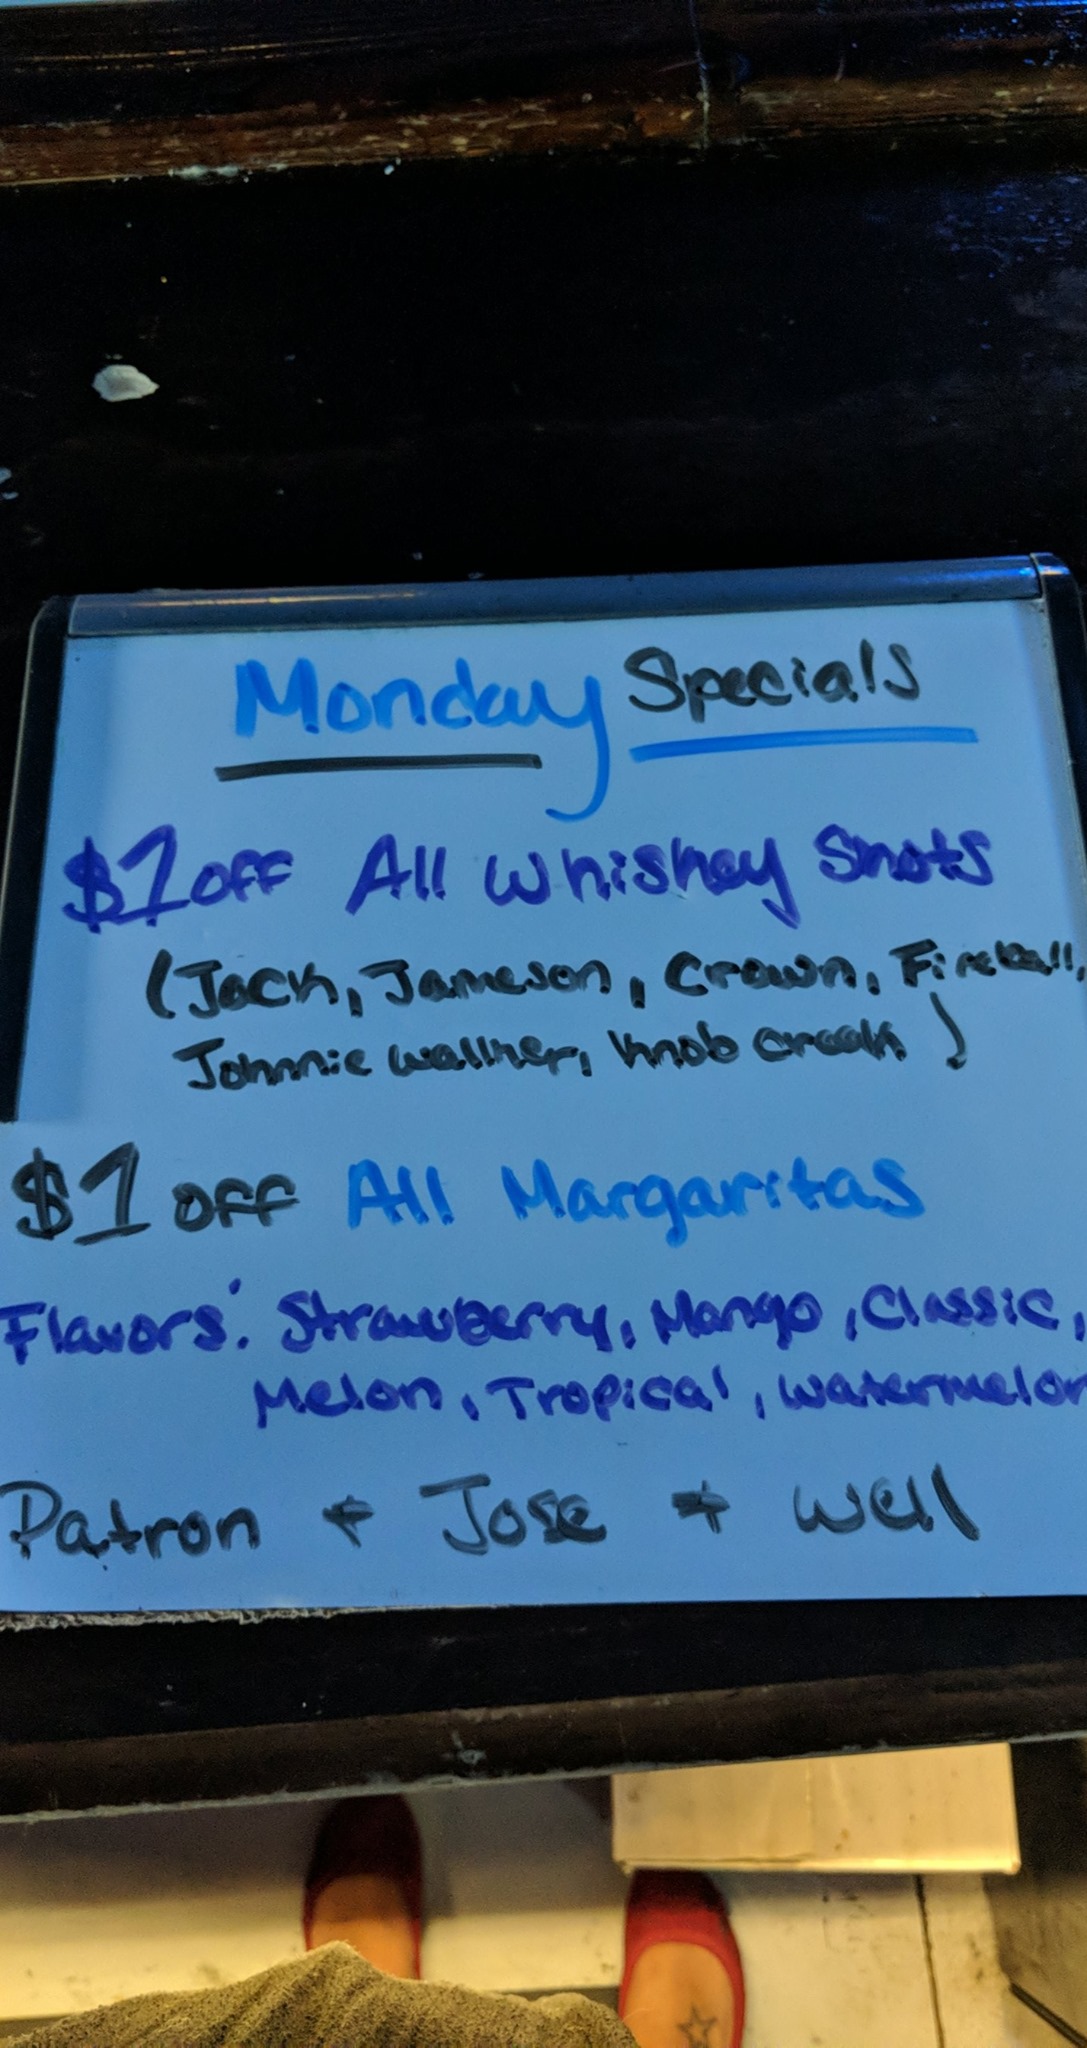 Monday Specials
$1 off All Whiskey Shots
(Jack, Jameson, Crown, Fireball,
Johnnie Walker, Knob Creek)
$1 off All Margaritas
Flavors: Strawberry, Mango, Classic,
Melon, Tropical, Watermelon
Patron + Jose + Well